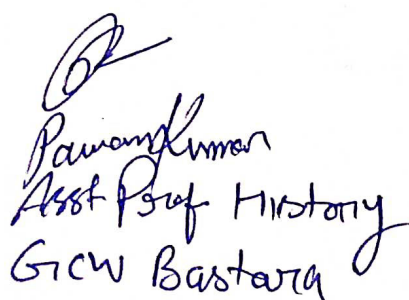 Pawan Kumar
Asst Prof History
GCW Bastara